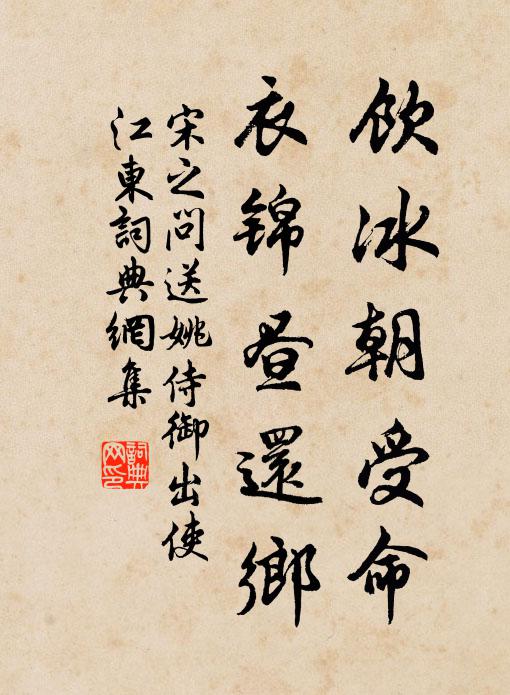 飲冰朝受命
衣錦昼還鄉
宋之问送姚侍御出使
江東詞典網集
詞典网印